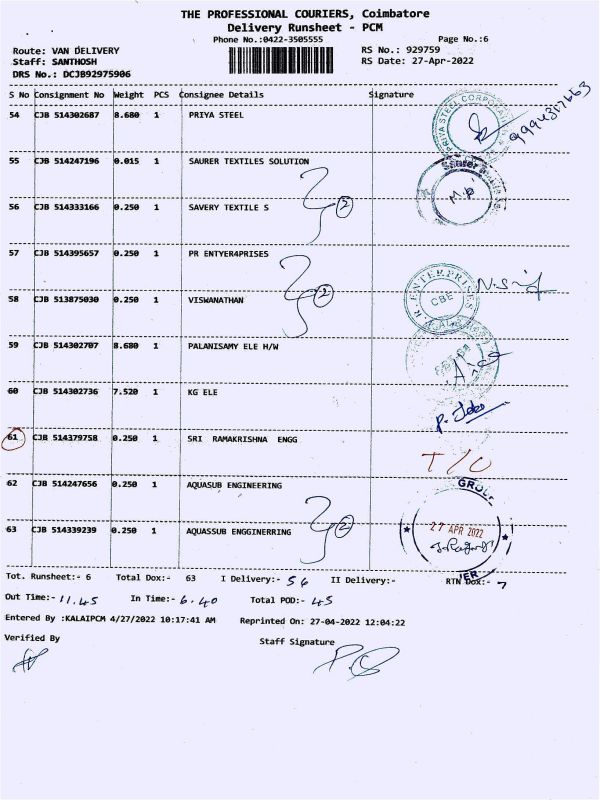 THE PROFESSIONAL COURIERS, Coimbatore
Delivery Runsheet - PCM
Phone No.:0422-3505555 Page No.:6
Route: VAN DELIVERY RS No.: 929759
Staff: SANTHOSH RS Date: 27-Apr-2022
DRS No.: DCJB92975906
S No Consignment No Weight PCS Consignee Details Signature
54 CJB 514302687 8.680 1 PRIYA STEEL
PRIYA STEEL CORPORATION
55 CJB 514247196 0.015 1 SAURER TEXTILES SOLUTION
Saurer
56 CJB 514333166 0.250 1 SAVERY TEXTILE S
2
57 CJB 514395657 0.250 1 PR ENTYER4PRISES
58 CJB 513875030 0.250 1 VISWANATHAN
2
P.R. ENTERPRISES
CBE
59 CJB 514302707 8.680 1 PALANISAMY ELE H/W
60 CJB 514302736 7.520 1 KG ELE
61 CJB 514379758 0.250 1 SRI RAMAKRISHNA ENGG
T/O
62 CJB 514247656 0.250 1 AQUASUB ENGINEERING
GROUP
63 CJB 514339239 0.250 1 AQUASSUB ENGGINERRING
2
27 APR 2022
Tot. Runsheet:- 6 Total Dox:- 63 I Delivery:- 56 II Delivery:- RTN Dox:- 7
Out Time:- 11.45 In Time:- 6.40 Total POD:- 45
Entered By :KALAIPCM 4/27/2022 10:17:41 AM Reprinted On: 27-04-2022 12:04:22
Verified By Staff Signature